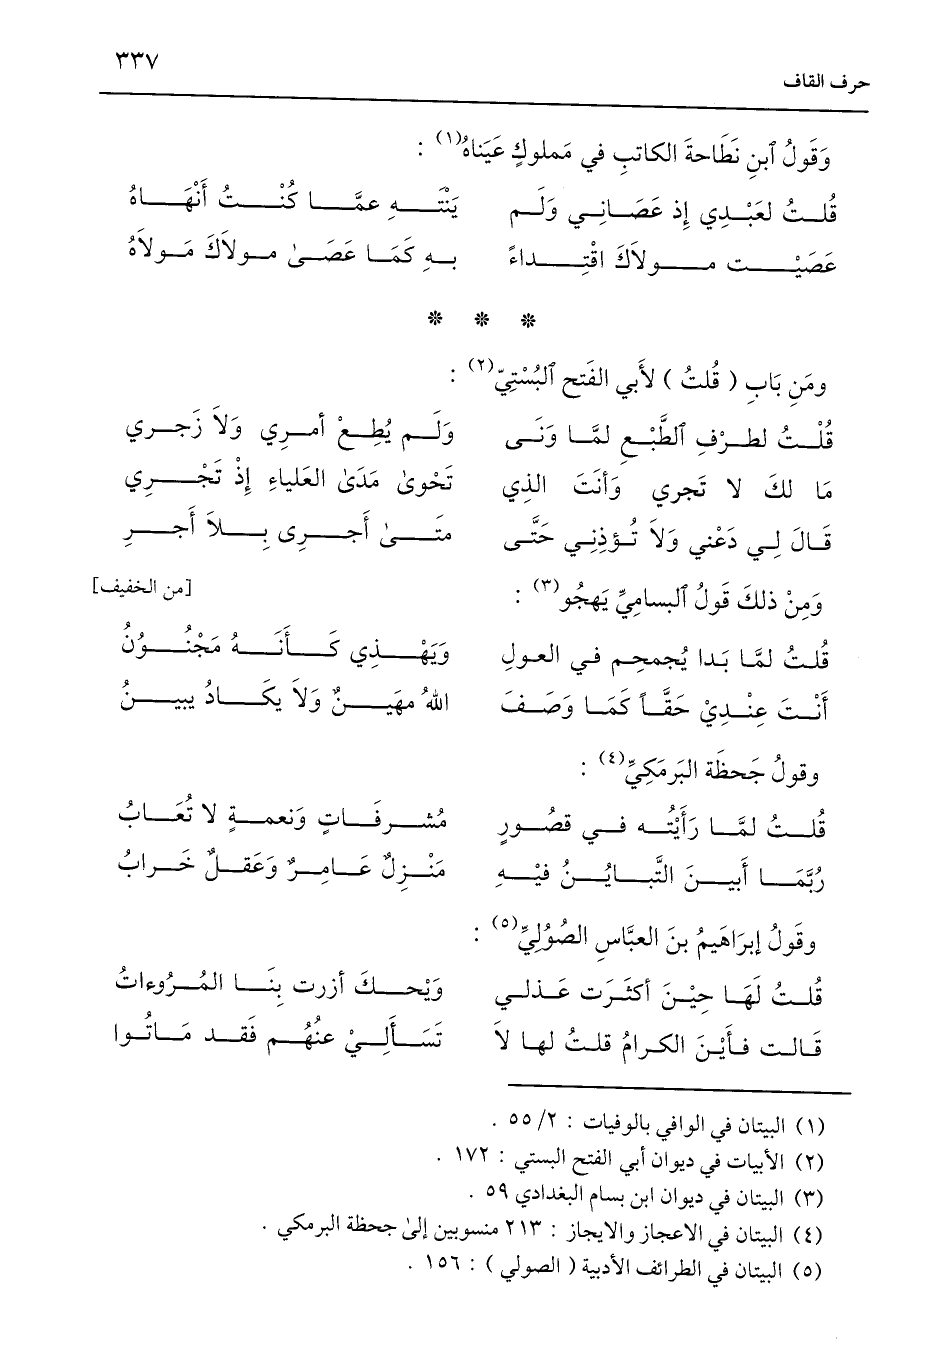 ٣٣٧
حرف القاف
وَقَولُ ٱبنِ نَطَاحةَ الكاتبِ في مَملوكٍ عَيَناهُ(١) :
قُلتُ لعَبْدِي إذ عَصَاني وَلَم يَنْتَهِ عمَّا كُنْتُ أَنْهَاهُ
عَصَيْت مولاَكَ اقْتِداءً بهِ كَمَا عَصَىٰ مولاَكَ مَولاَهُ
* * *
ومَن بَابِ ( قُلتُ ) لأَبي الفَتحِ ٱلبُسْتِيّ(٢) :
قُلْتُ لطرْفِ ٱلطَّبْعِ لمَّا وَنَى وَلَم يُطِعْ أمرِي وَلاَ زَجرِي
مَا لكَ لا تَجري وَأنتَ الذي تَحْوىٰ مَدَىٰ العَلياءِ إذْ تَجْرِي
قَالَ لِي دَعْني وَلاَ تُؤذِنِي حَتَّى مَتىٰ أَجرِى بِلاَ أَجرِ
وَمِنْ ذلكَ قَولُ ٱلبساميِّ يَهجُو(٣) : [من الخفيف]
قُلتُ لمَّا بَدا يُجمجم في العولِ وَيَهْذِي كَأَنَهُ مَجْنُونُ
أَنْتَ عِنْدِيْ حَقَّاً كَمَا وَصَفَ اللهُ مهَينٌ وَلاَ يكَادُ يبينُ
وقولُ جَحظَة البَرمَكِيِّ(٤) :
قُلتُ لمَّا رَأَيْتُه في قصُورٍ مُشرفَاتٍ وَنعمةٍ لا تُعَابُ
رُبَّمَا أَبينَ التَّبايُنُ فيْهِ مَنْزِلٌ عَامرٌ وَعَقلٌ خَرابُ
وقَولُ إبرَاهَيمُ بنَ العبَّاسِ الصُوُليِّ(٥) :
قُلتُ لَهَا حِيْنَ أكثَرَت عَذلي وَيْحكَ أزرت بِنَا المُرُوءاتُ
قَالت فأَيْنَ الكرامُ قلتُ لها لاَ تَسَألِيْ عنُهُم فَقَد مَاتُوا
(١) البيتان في الوافي بالوفيات : ٢/ ٥٥ .
(٢) الأبيات في ديوان أبي الفتح البستي : ١٧٢ .
(٣) البيتان في ديوان ابن بسام البغدادي ٥٩ .
(٤) البيتان في الاعجاز والايجاز : ٢١٣ منسوبين إلىٰ جحظة البرمكي .
(٥) البيتان في الطرائف الأدبية ( الصولي ) : ١٥٦ .